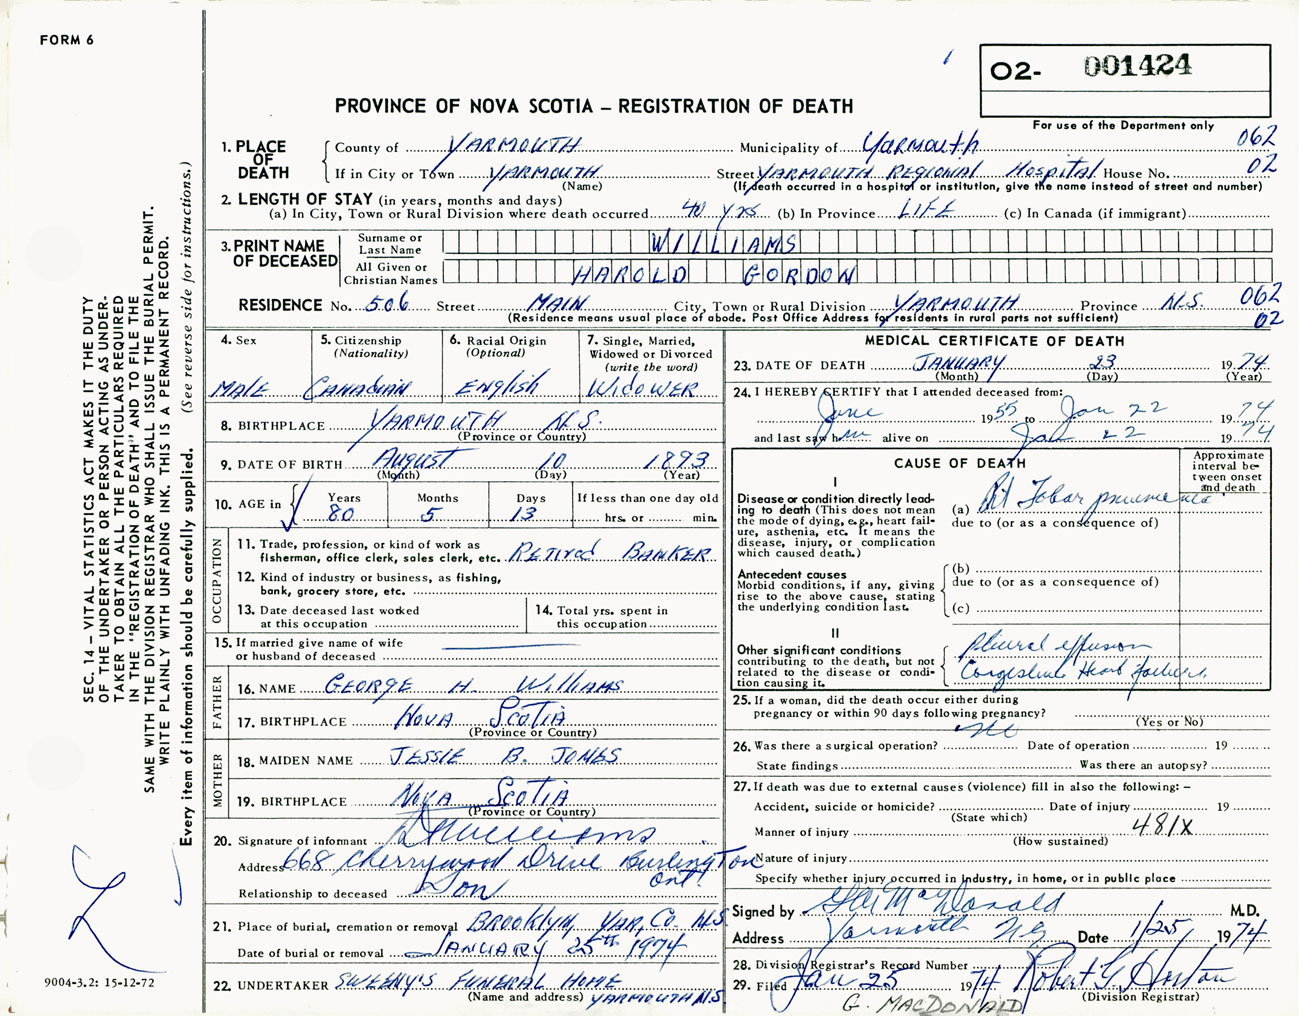 FORM 6
O2- 001424
PROVINCE OF NOVA SCOTIA – REGISTRATION OF DEATH
For use of the Department only
1. PLACE OF DEATH
County of YARMOUTH Municipality of Yarmouth 062
If in City or Town YARMOUTH Street YARMOUTH REGIONAL Hospital House No. 02
(Name) (If death occurred in a hospital or institution, give the name instead of street and number)
2. LENGTH OF STAY (in years, months and days)
(a) In City, Town or Rural Division where death occurred 40 yrs (b) In Province LIFE (c) In Canada (if immigrant)
3. PRINT NAME OF DECEASED
Surname or Last Name WILLIAMS
All Given or Christian Names HAROLD GORDON
RESIDENCE No. 506 Street MAIN City, Town or Rural Division YARMOUTH Province N.S. 062
(Residence means usual place of abode. Post Office Address for residents in rural parts not sufficient) 02
4. Sex
MALE
5. Citizenship
(Nationality)
Canadian
6. Racial Origin
(Optional)
English
7. Single, Married,
Widowed or Divorced
(write the word)
WIDOWER
8. BIRTHPLACE YARMOUTH N.S.
(Province or Country)
9. DATE OF BIRTH August 10 1893
(Month) (Day) (Year)
10. AGE in
Years Months Days If less than one day old
80 5 13 hrs. or min.
OCCUPATION
11. Trade, profession, or kind of work as
fisherman, office clerk, sales clerk, etc. Retired BANKER
12. Kind of industry or business, as fishing,
bank, grocery store, etc.
13. Date deceased last worked
at this occupation
14. Total yrs. spent in
this occupation
15. If married give name of wife
or husband of deceased
FATHER
16. NAME GEORGE H. Williams
17. BIRTHPLACE Nova Scotia
(Province or Country)
MOTHER
18. MAIDEN NAME JESSIE B. JONES
19. BIRTHPLACE Nova Scotia
(Province or Country)
20. Signature of informant Williams
Address 668 Cherrywood Drive Burlington
Ont.
Relationship to deceased Son
21. Place of burial, cremation or removal BROOKLYN, YAR, Co. N.S.
Date of burial or removal JANUARY 25th 1974
22. UNDERTAKER SWEENY'S FUNERAL HOME
(Name and address) YARMOUTH N.S.
MEDICAL CERTIFICATE OF DEATH
23. DATE OF DEATH JANUARY 23 1974
(Month) (Day) (Year)
24. I HEREBY CERTIFY that I attended deceased from:
June 1955 to Jan 22 1974
and last saw him alive on Jan 22 1974
CAUSE OF DEATH
Approximate
interval be-
tween onset
and death
I
Disease or condition directly lead-
ing to death (This does not mean
the mode of dying, e.g., heart fail-
ure, asthenia, etc. It means the
disease, injury, or complication
which caused death.)
(a) Bil Lobar pneumonia
due to (or as a consequence of)
Antecedent causes
Morbid conditions, if any, giving
rise to the above cause, stating
the underlying condition last.
(b)
due to (or as a consequence of)
(c)
II
Other significant conditions
contributing to the death, but not
related to the disease or condi-
tion causing it.
Pleural effusion
Congestive Heart failure.
25. If a woman, did the death occur either during
pregnancy or within 90 days following pregnancy?
(Yes or No)
26. Was there a surgical operation? No Date of operation 19
State findings Was there an autopsy?
27. If death was due to external causes (violence) fill in also the following: –
Accident, suicide or homicide? Date of injury 19
(State which)
Manner of injury 481X
(How sustained)
Nature of injury
Specify whether injury occurred in Industry, in home, or in public place
Signed by MacDonald M.D.
Address Yarmouth N.S. Date 1/25/ 1974
28. Division Registrar's Record Number
29. Filed Jan 25 1974 Robert G. Horton
(Division Registrar)
G. MACDONALD
SEC. 14 – VITAL STATISTICS ACT MAKES IT THE DUTY
OF THE UNDERTAKER OR PERSON ACTING AS UNDER-
TAKER TO OBTAIN ALL THE PARTICULARS REQUIRED
IN THE "REGISTRATION OF DEATH" AND TO FILE THE
SAME WITH THE DIVISION REGISTRAR WHO SHALL ISSUE THE BURIAL PERMIT.
WRITE PLAINLY WITH UNFADING INK. THIS IS A PERMANENT RECORD.
Every item of information should be carefully supplied. (See reverse side for instructions.)
9004-3.2: 15-12-72